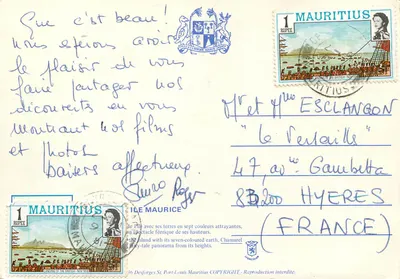 Que c'est beau!
nous espérons avoir
le plaisir de vous
faire partager nos
découvertes en vous
montrant nos films
et photos
baisers affectueux
Roger
1
RUPEE
MAURITIUS
1
RUPEE
MAURITIUS
Mr et Mme ESCLANGON
"le Versailles"
47, ave Gambetta
83200 HYERES
(FRANCE)
ILE MAURICE
avec ses terres au sept couleurs attrayantes,
spectacle féerique de ses hauteurs.
island with its seven-coloured earth, Chamarel
fairy-tale panorama from its heights.
Desforges St. Port-Louis Mauritius COPYRIGHT. - Reproduction interdite.